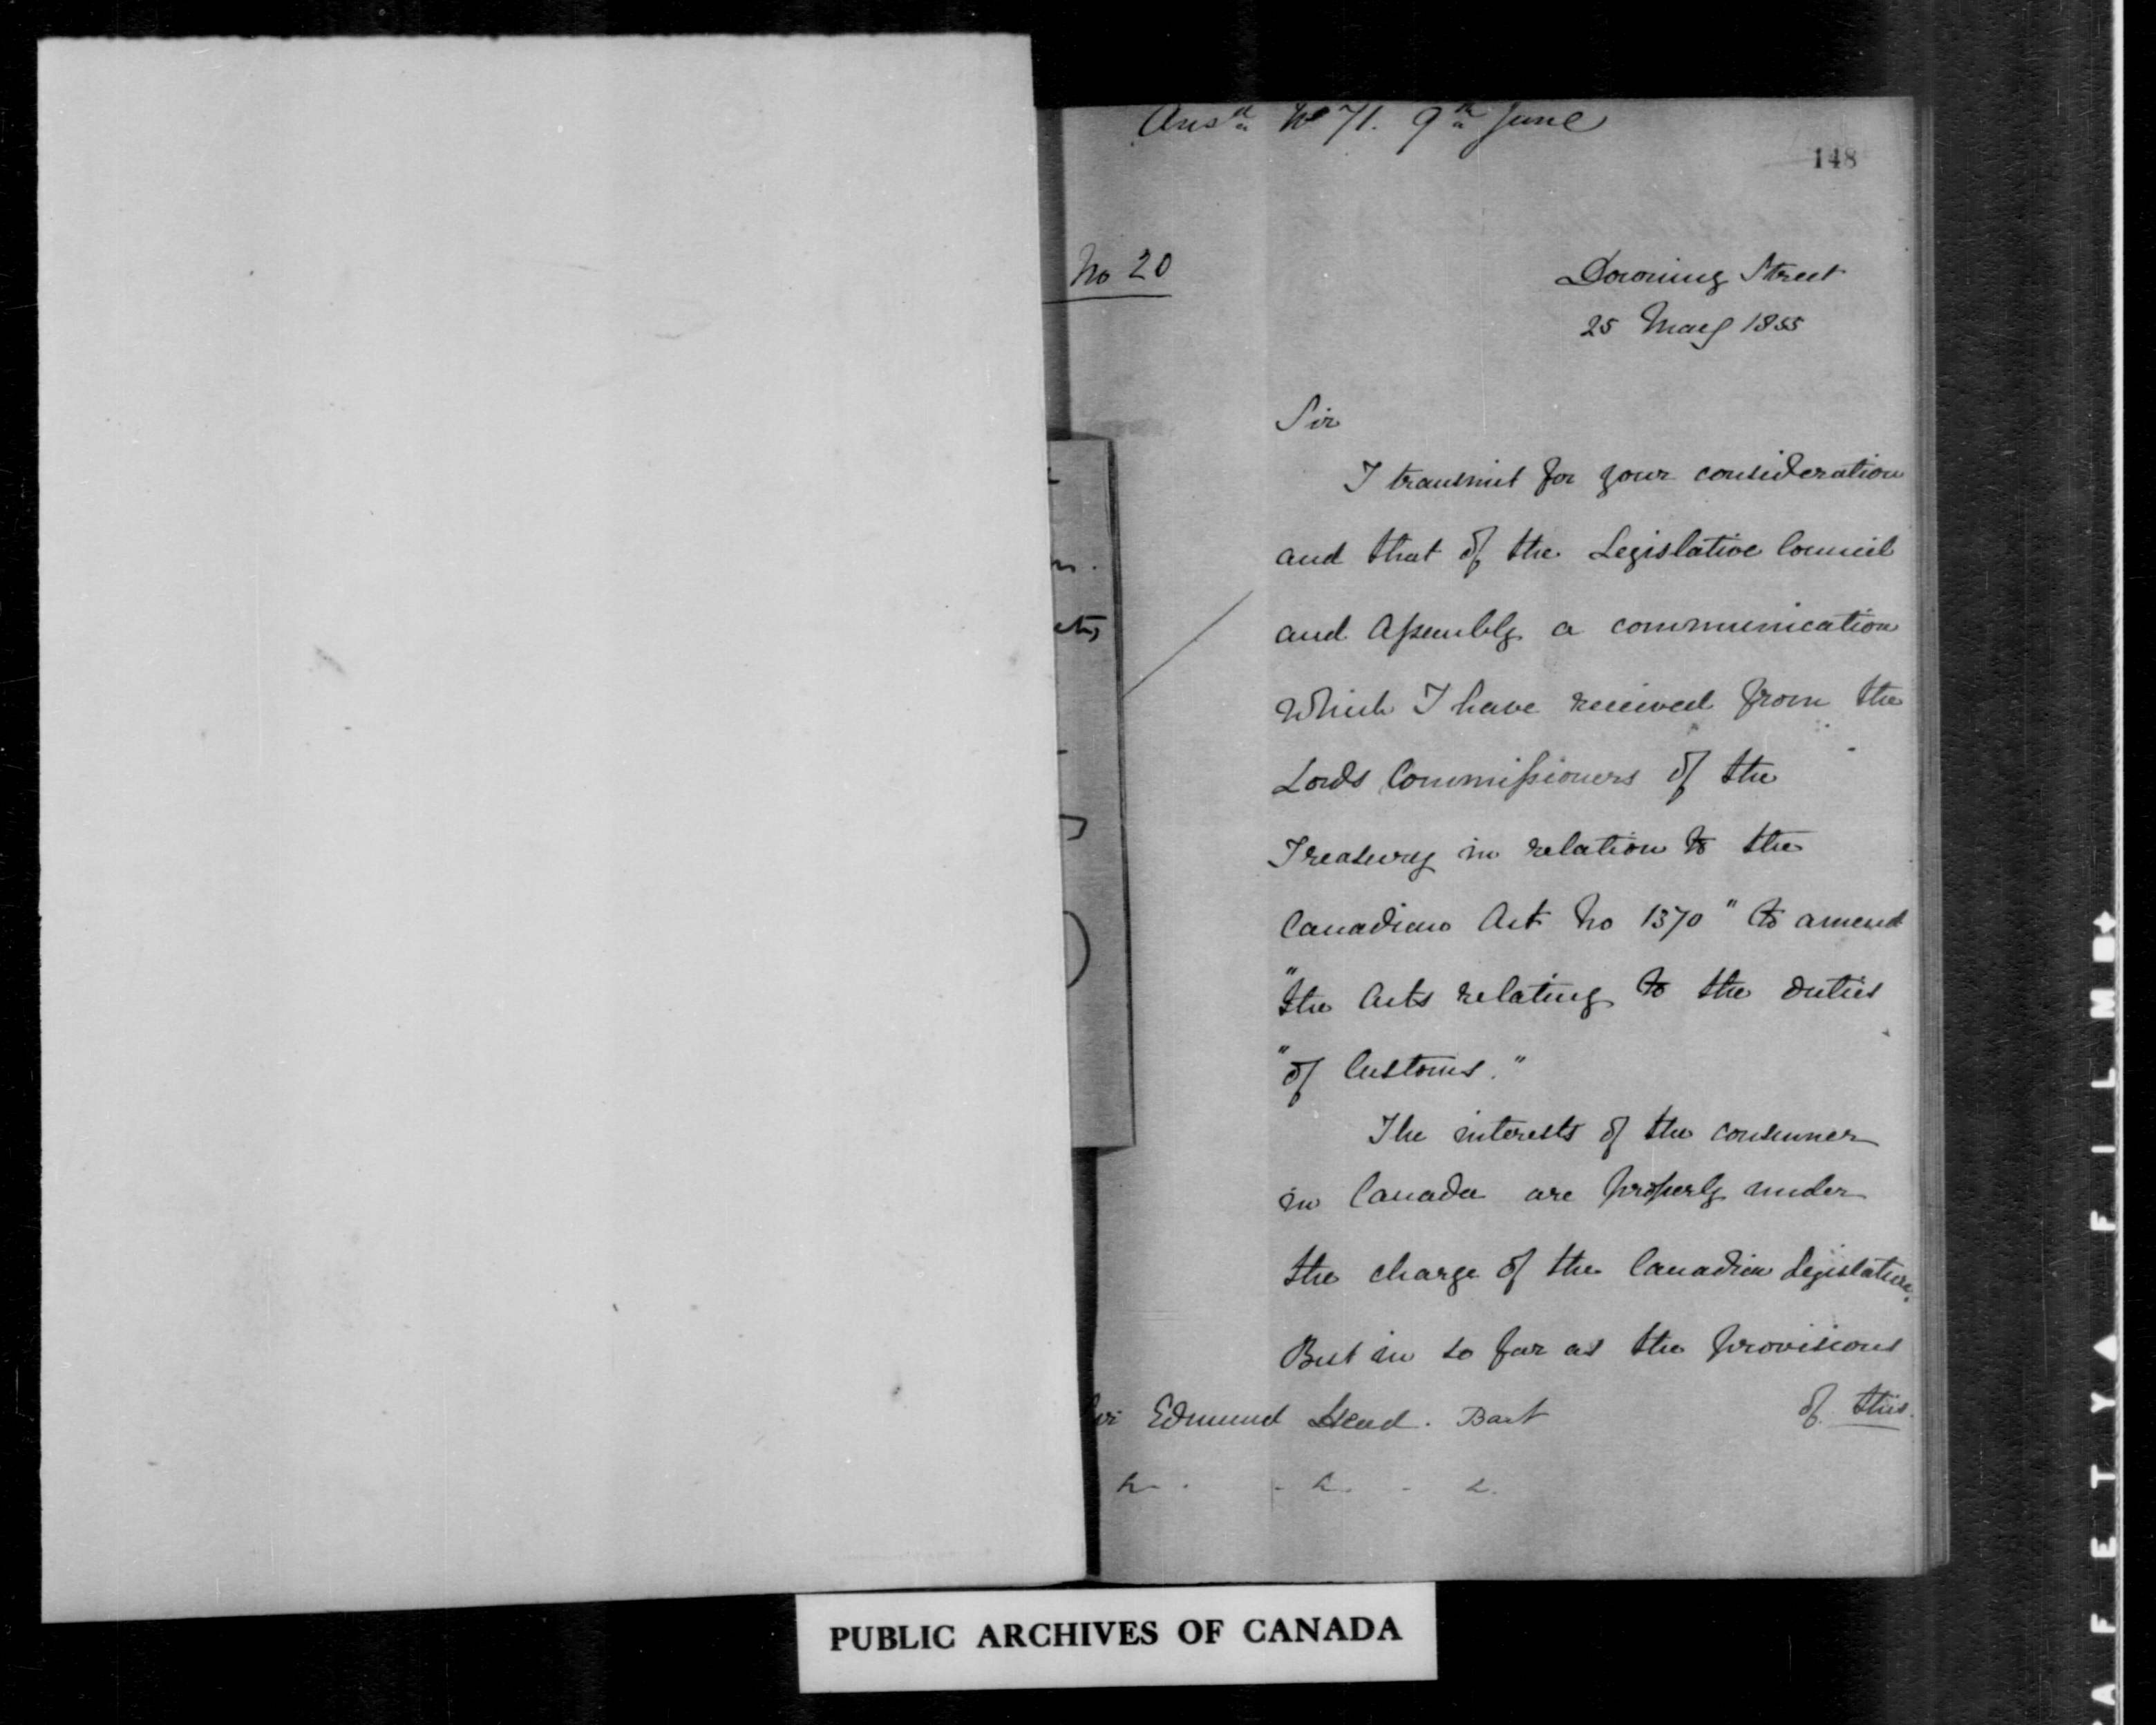 Ansd No 71. 9th June
148
No 20
Downing Street
25 May 1855
Sir
I transmit for your consideration
and that of the Legislative Council
and Assembly a communication
which I have received from the
Lords Commissioners of the
Treasury in relation to the
Canadian Act No 1370 "to amend
"the Acts relating to the duties
"of Customs."
The interests of the consumer
in Canada are properly under
the charge of the Canadian Legislature.
But in so far as the provisions
Sir Edmund Head. Bart
of this
PUBLIC ARCHIVES OF CANADA
AFETY▲FILM